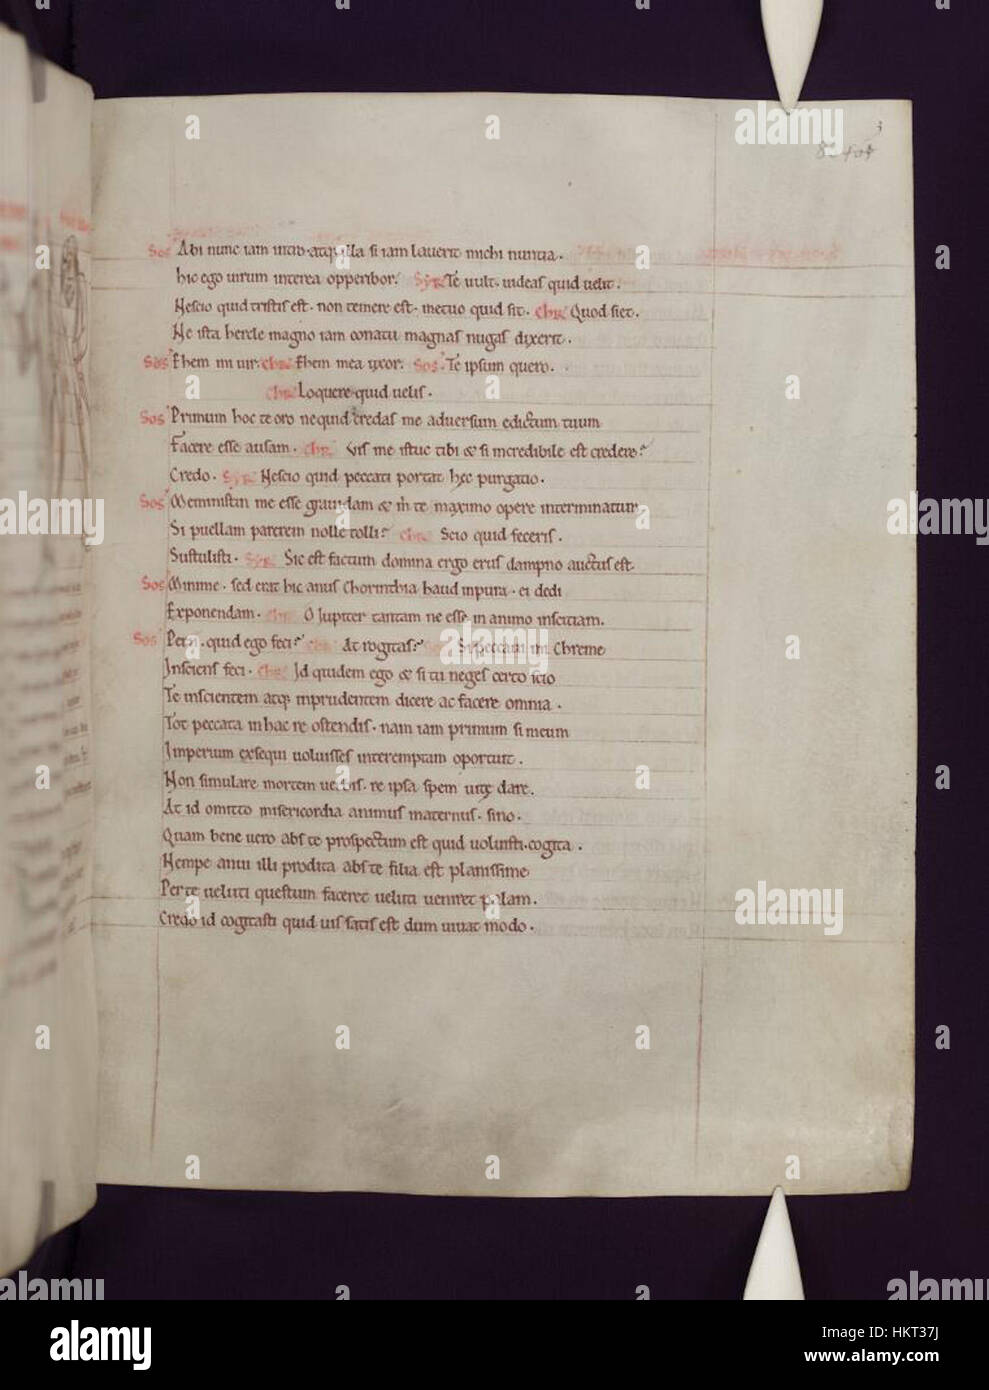 3
Sos Abi nunc iam intro atq; illa si iam lauerit michi nuntia.
hic ego uirum interea opperibor. Syr Te uult uideas quid uelit.
Nescio quid tristis est. non temere est. metuo quid sit. Chr Quod siet.
Ne ista hercle magno iam conatu magnas nugas dixerit.
Sos Ehem mi uir. Chr Ehem mea uxor. Sos Te ipsum quero.
Chr Loquere quid uelis.
Sos Primum hoc te oro nequid credas me aduersum edictum tuum
Facere esse ausam. Chr Vis me istuc tibi & si incredibile est credere?
Credo. Syr Nescio quid peccati portat hęc purgatio.
Sos Meministin me esse grauidam & m te maximo opere interminatum
Si puellam parerem nolle tolli? Chr Scio quid feceris.
Sustulisti. Syr Sic est factum domina ergo erus dampno auctus est.
Sos Minime. sed erat hic anus Chorinthia haud inpura. ei dedi
Exponendam. Chr O Jupiter tantam ne esse in animo inscitiam.
Sos Perii. quid ego feci? Chr At rogitas? Sos Si peccaui mi Chreme
Insciens feci. Chr Id quidem ego & si tu neges certo scio
Te inscientem atq; inprudentem dicere ac facere omnia.
Tot peccata in hac re ostendis. nam iam primum si meum
Imperium exsequi uoluisses interemptam oportuit.
Non simulare mortem uerbis. re ipsa spem uitę dare.
At id omitto misericordia animus maternus. sino.
Quam bene uero abs te prospectum est quid uoluisti. cogita.
Nempe anui illi prodita abs te filia est planissime
Per te ueluti questum faceret ueluti ueniret palam.
Credo id cogitasti quid uis satis est dum uiuat modo.
alamy
a
alamy
Image ID: HKT37J
www.alamy.com